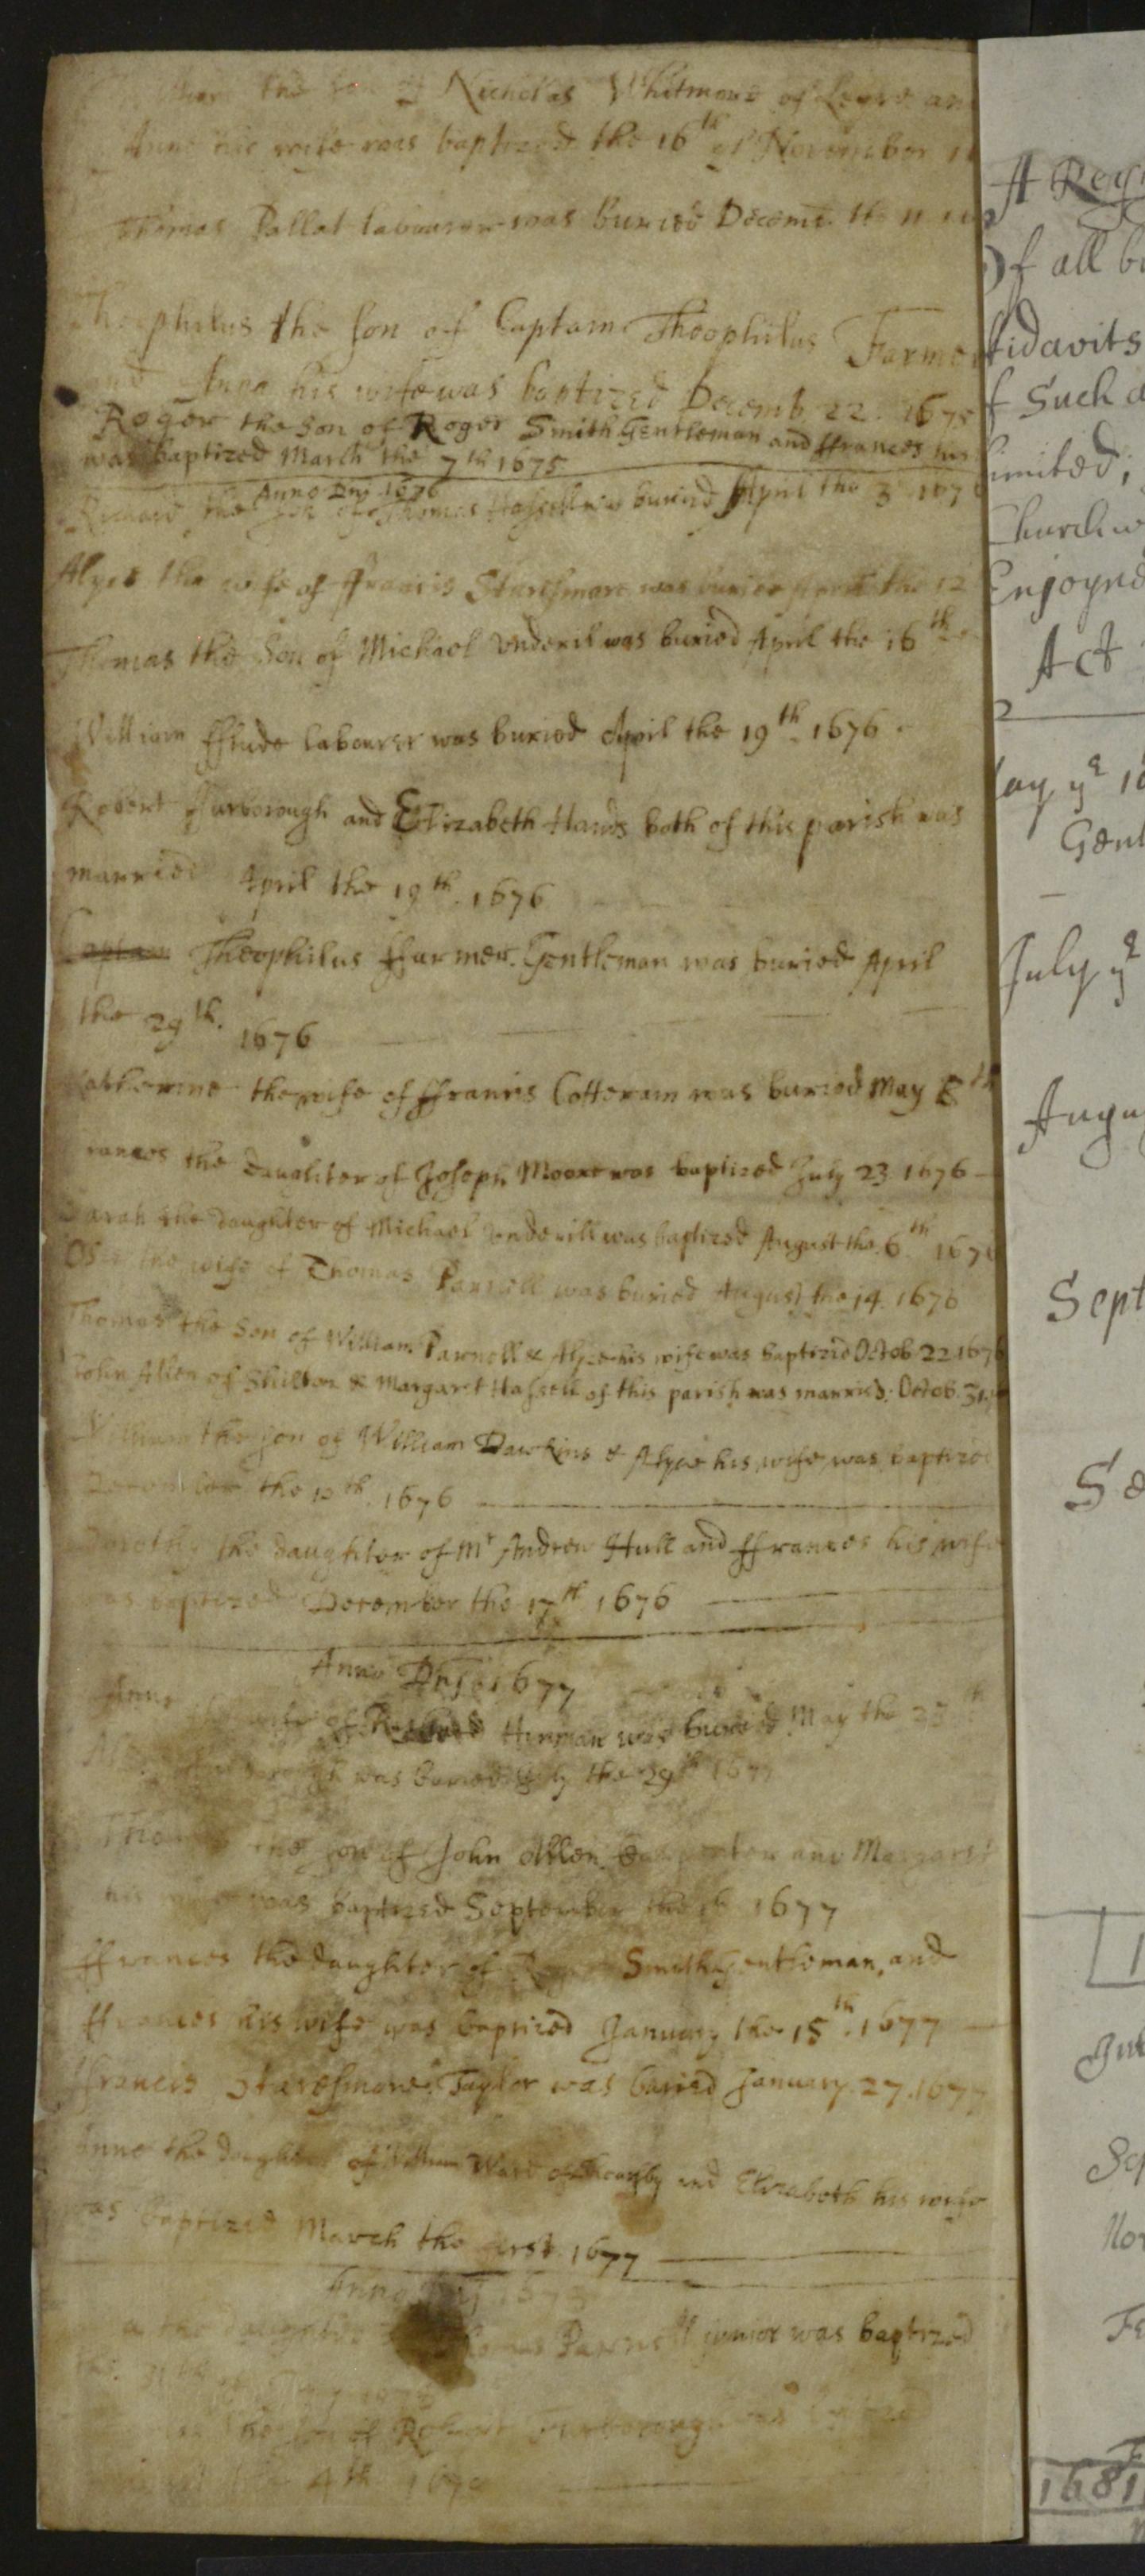 the son of Nicholas Whitmore of Leyre an
Anne his wife was baptized the 16th of November 1
Thomas Pallat labourer was Buried Decemb. the 11
Theophilus the son of Captain Theophilus Farmer
and Anna his wife was baptized Decemb. 22. 1675
Roger the Son of Roger Smith Gentleman and ffrances his
was baptized March the 7th 1675
Anno Dnj 1676
Richard the son of Thomas was buried April the 3 167
Alyce the wife of ffrancis Staresmore was buried the 12
Thomas the Son of Michael Underil was buried April the 16th
William labourer was buried April the 19th 1676
Robert ffurborough and Elizabeth Hands both of this parish was
married April the 19th. 1676
Captain Theophilus ffarmer. Gentleman was buried April
the 29th. 1676
Catherine the wife of ffrancis Cotteram was buried May 8th
rances the daughter of Joseph Moore was baptized July 23 1676
Sarah the daughter of Michael Underill was baptized August the 6th 1676
the wife of Thomas Parnell was buried August the 14. 1676
Thomas the Son of William Parnell & Alyce his wife was baptized Octob. 22 1676
John Allen of Shilton & Margaret Hassell of this parish was married. Octob. 31.
William the son of William Dawkins & Alyce his wife was baptized
December the 12th. 1676
Dorothy the daughter of Mr Andrew Hull and ffrances his wife
was baptized December the 17th 1676
Anno Dnj. 1677
Anne wife of Richard Hinman was buried May the 25th
was buried July the 29th 1677
Tho the son of John Allen and Margaret
his wife was baptized September the 1677
ffrances the daughter of Smith Gentleman, and
ffrances his wife was baptized January the 15th. 1677
ffrancis Staresmore Taylor was buried January. 27. 1677
Anne the daughter of William Ward of and Elizabeth his wife
was baptized March the first. 1677
Anno Dnj 1678
the daughter Thomas Parnell junior was baptized
the
the son of Robert ffurborough was baptized
4th 167
A Reg
Of all bu
fidavits
f Such a
limited;
Church w
Enjoyned
Act
ay ye 16
Gent
July ye
Augu
Sept
Se
Jul
Sep
Nov
Fe
1681